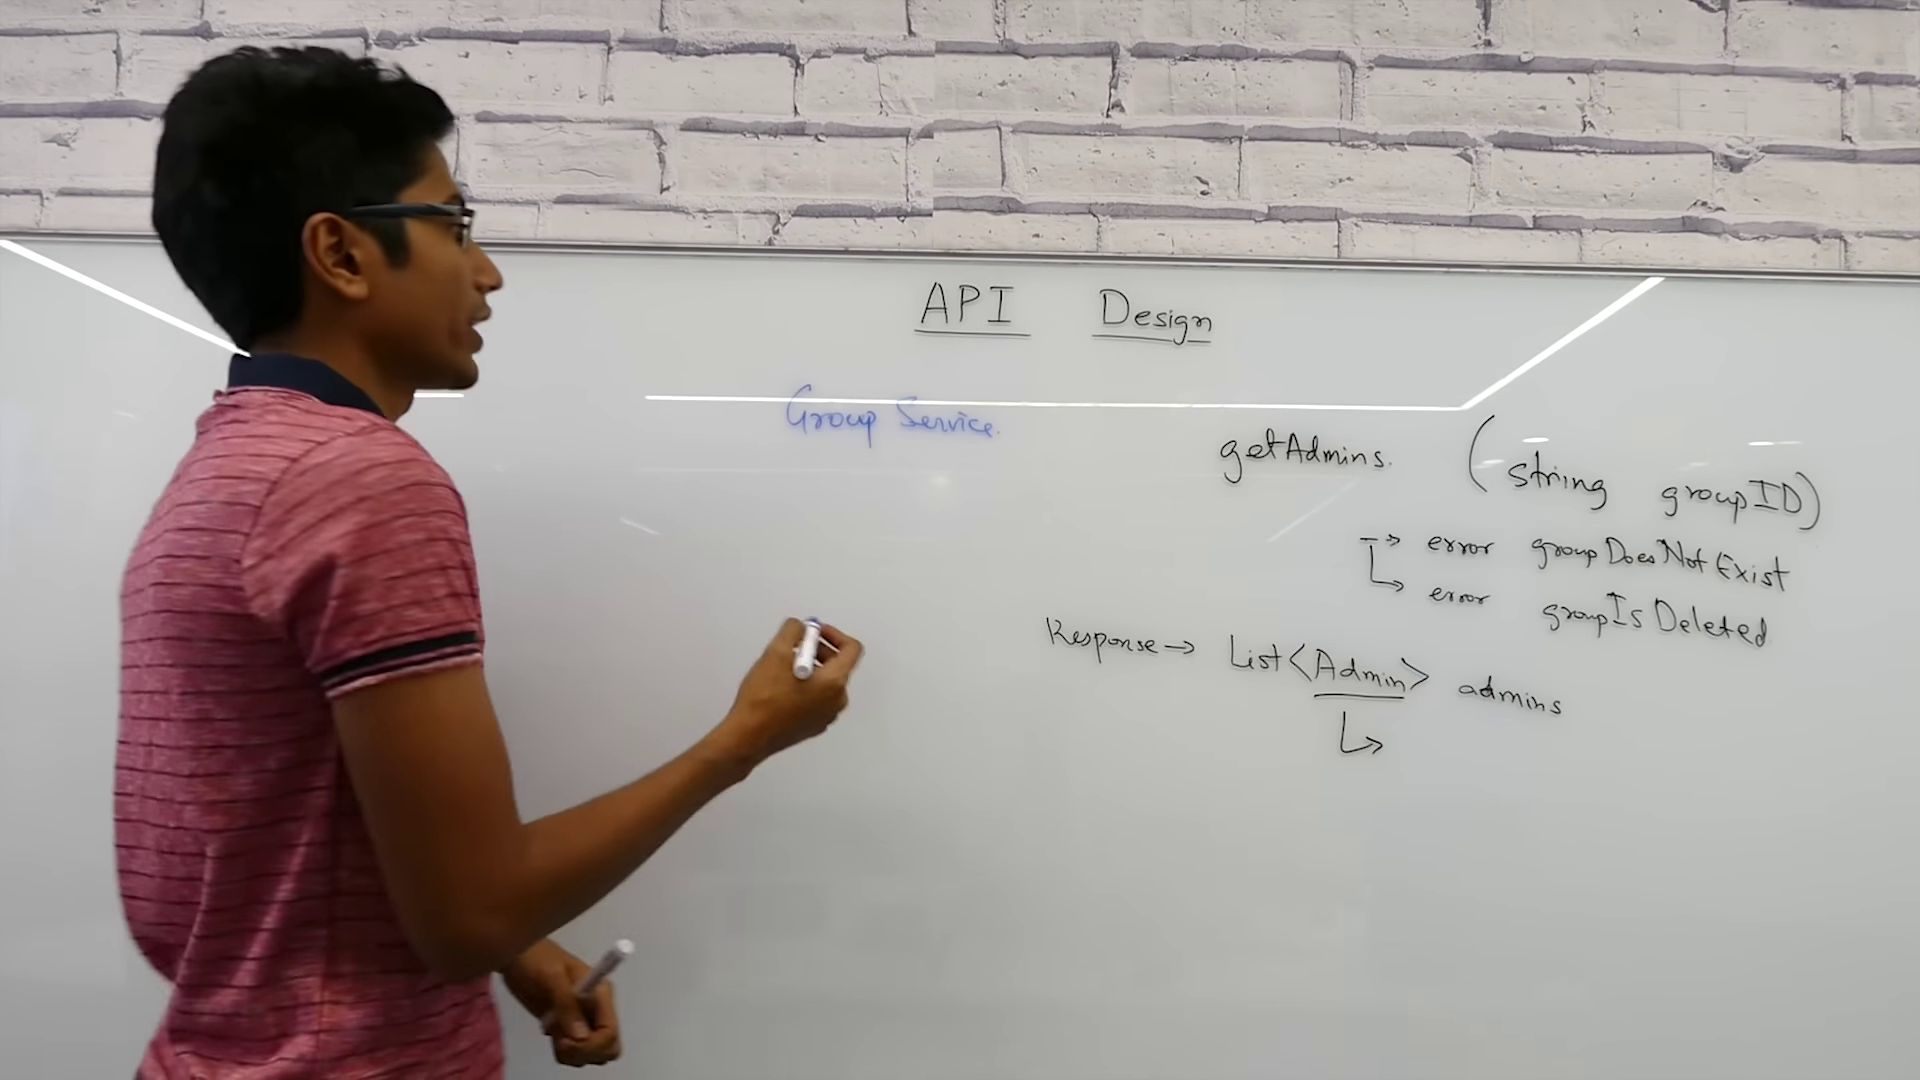 API Design
Group Service.
getAdmins. (string groupID)
→ error groupDoesNotExist
↳ error groupIsDeleted
Response → List<Admin> admins
↳